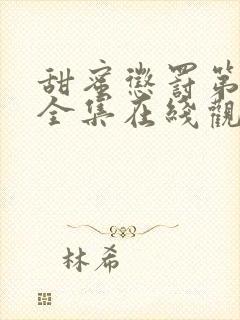 甜蜜懲罰第
全集在綫觀
林希